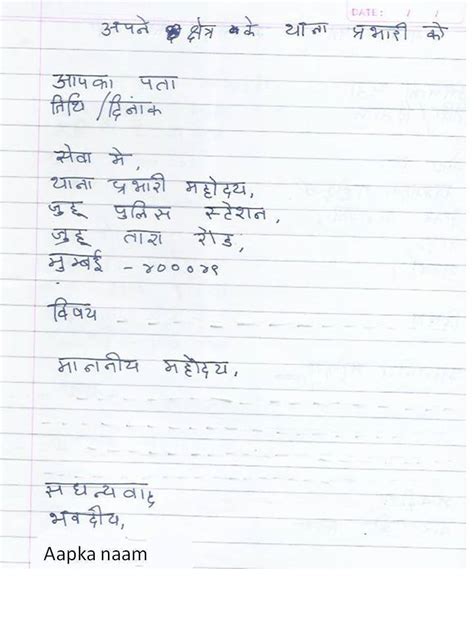 DATE: / /
अपने क्षेत्र के थाना प्रभारी को
आपका पता
तिथि / दिनाक
सेवा मे,
थाना प्रभारी महोदय,
जुहू पुलिस स्टेशन,
जुहू तारा रोड,
मुम्बई - ४०००४९
विषय
माननीय महोदय,
सधन्यवाद
भवदीय,
Aapka naam